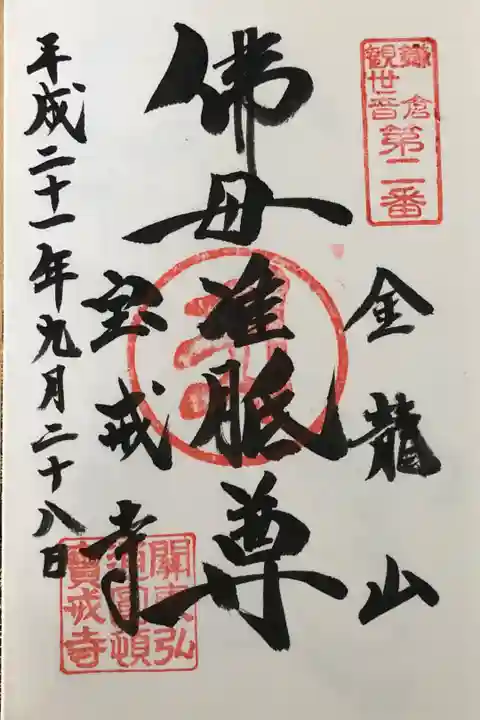 鎌倉
観世音
第二番
金龍山
佛母准胝尊
宝戒寺
平成二十一年九月二十八日
關東弘
通圓頓
寶戒寺